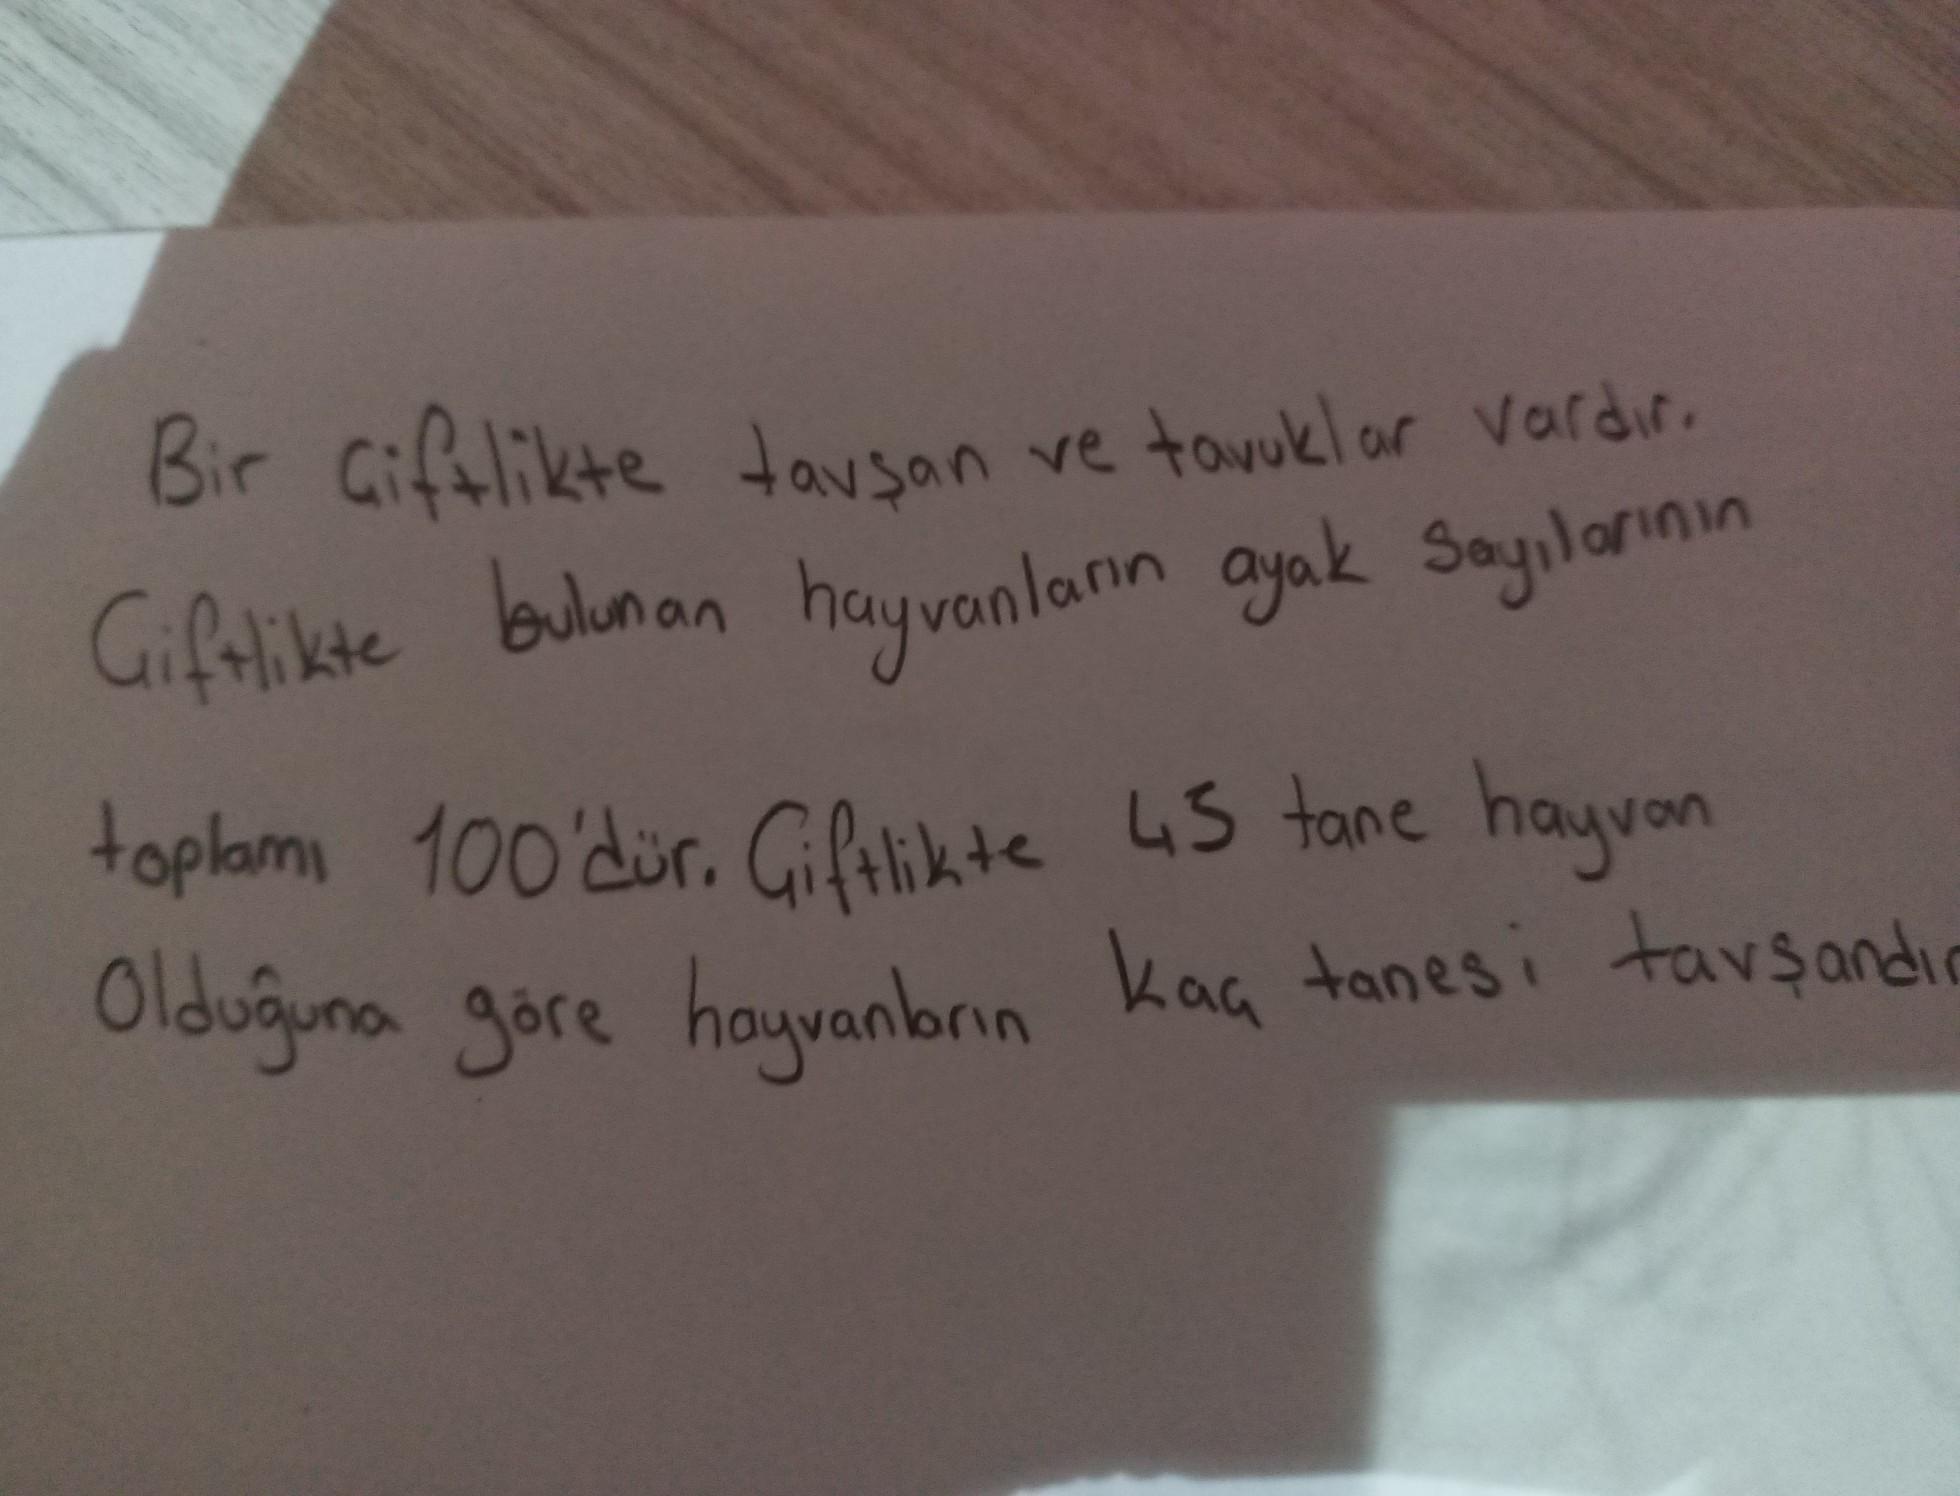 Bir Çiftlikte tavşan ve tavuklar vardır.
Çiftlikte bulunan hayvanların ayak sayılarının
toplamı 100'dür. Çiftlikte 45 tane hayvan
Olduğuna göre hayvanların kaç tanesi tavşandır